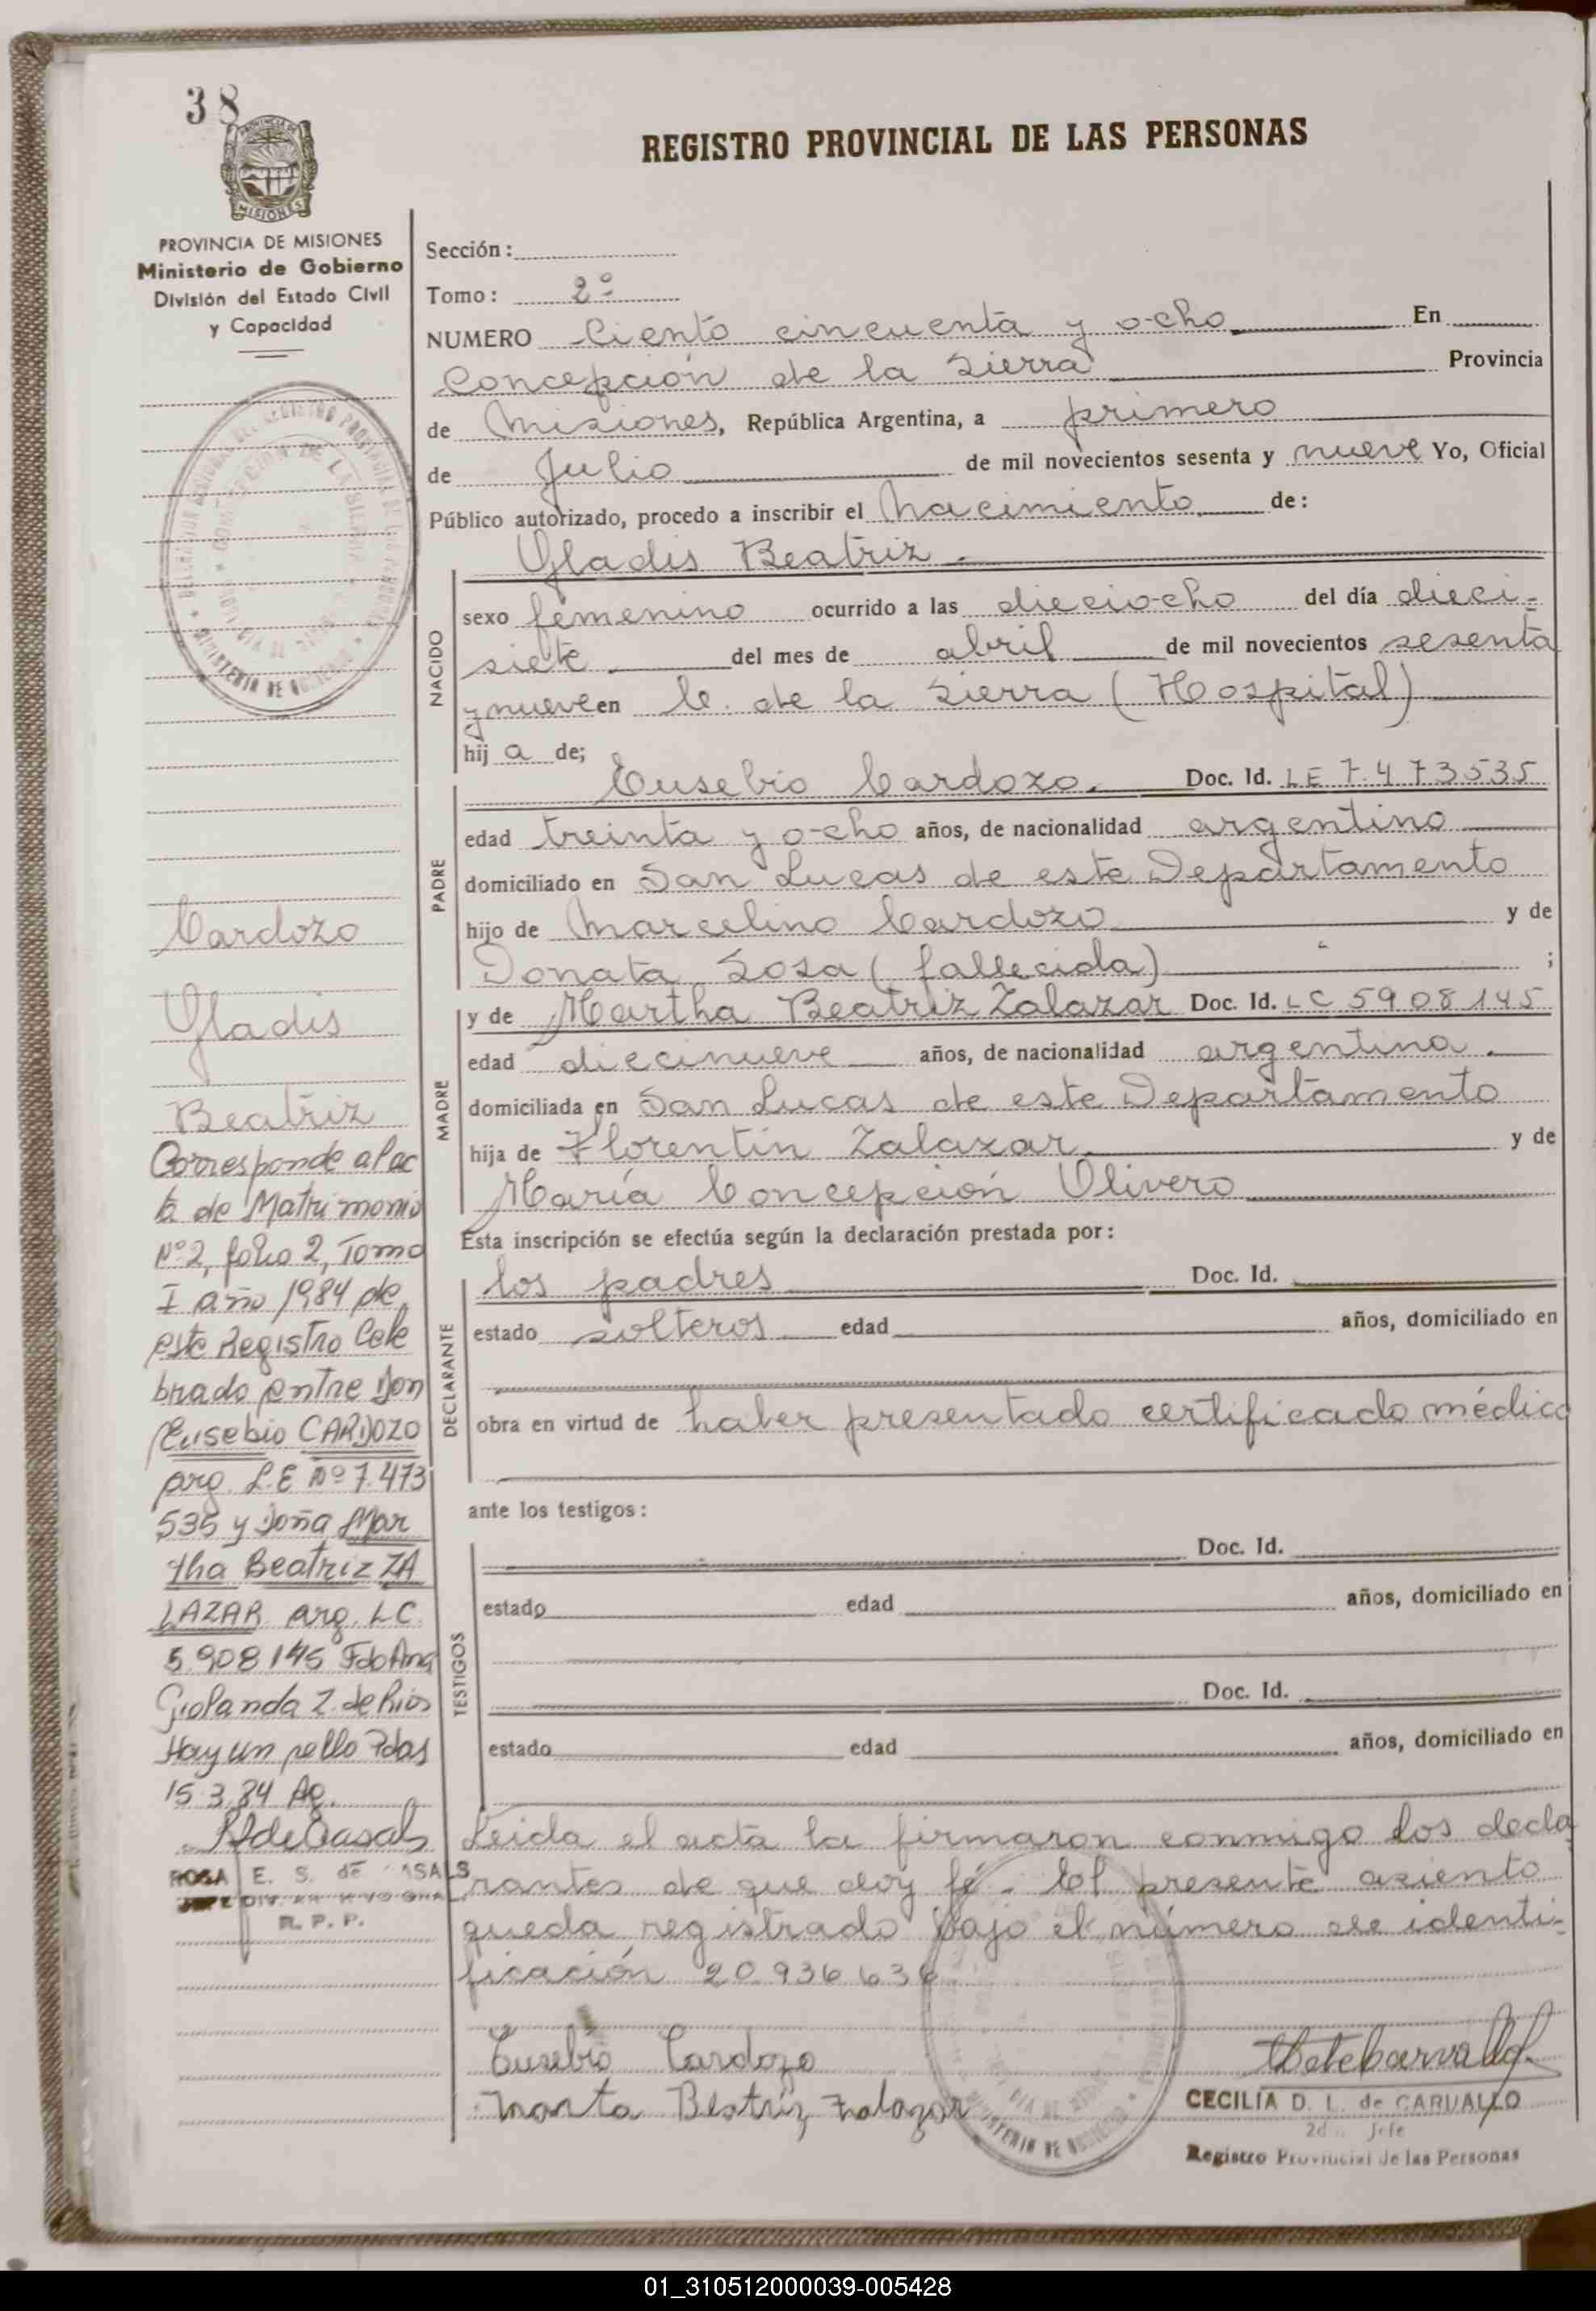 38
PROVINCIA DE MISIONES
Ministerio de Gobierno
División del Estado Civil
y Capacidad
REGISTRO PROVINCIAL DE LAS PERSONAS
Sección:
Tomo: 2º
NUMERO Ciento cincuenta y ocho En
Concepción de la Sierra Provincia
de Misiones, República Argentina, a primero
de Julio de mil novecientos sesenta y nueve Yo, Oficial
Público autorizado, procedo a inscribir el Nacimiento de:
NACIDO
Gladis Beatriz
sexo femenino ocurrido a las dieciocho del día dieci-
siete del mes de abril de mil novecientos sesenta
y nueve en C. de la Sierra (Hospital)
hij a de;
PADRE
Eusebio Cardozo. Doc. Id. LE 7.473535
edad treinta y ocho años, de nacionalidad argentino
domiciliado en San Lucas de este Departamento
hijo de Marcelino Cardozo y de
Donata Sosa (fallecida) ;
MADRE
y de Martha Beatriz Zalazar Doc. Id. LC 5908145
edad diecinueve años, de nacionalidad argentina.
domiciliada en San Lucas de este Departamento
hija de Florentín Zalazar y de
María Concepción Olivero
Esta inscripción se efectúa según la declaración prestada por:
DECLARANTE
los padres Doc. Id.
estado solteros edad años, domiciliado en
obra en virtud de haber presentado certificado médico
ante los testigos:
TESTIGOS
Doc. Id.
estado edad años, domiciliado en
Doc. Id.
estado edad años, domiciliado en
Leida el acta la firmaron conmigo los decla-
rantes de que doy fé. El presente asiento
queda registrado bajo el número de identi-
ficación 20.936.636
Eusebio Cardozo
Marta Beatriz Zalazar
CECILIA D. L. de CARVALLO
2do. Jefe
Registro Provincial de las Personas
Cardozo
Gladis
Beatriz
Corresponde al ac
ta de Matrimonio
Nº 2, folio 2, Tomo
I año 1984 de
este Registro Cele
brado entre Don
Eusebio CARDOZO
arg. L.E Nº 7.473
535 y Doña Mar
tha Beatriz ZA
LAZAR arg. LC.
5.908145 Fdo Ana
Yolanda Z. de Rios
Hay un sello Pdas
15.3.84
ROSA E. S. de CASALS
R. P. P.
01_310512000039-005428